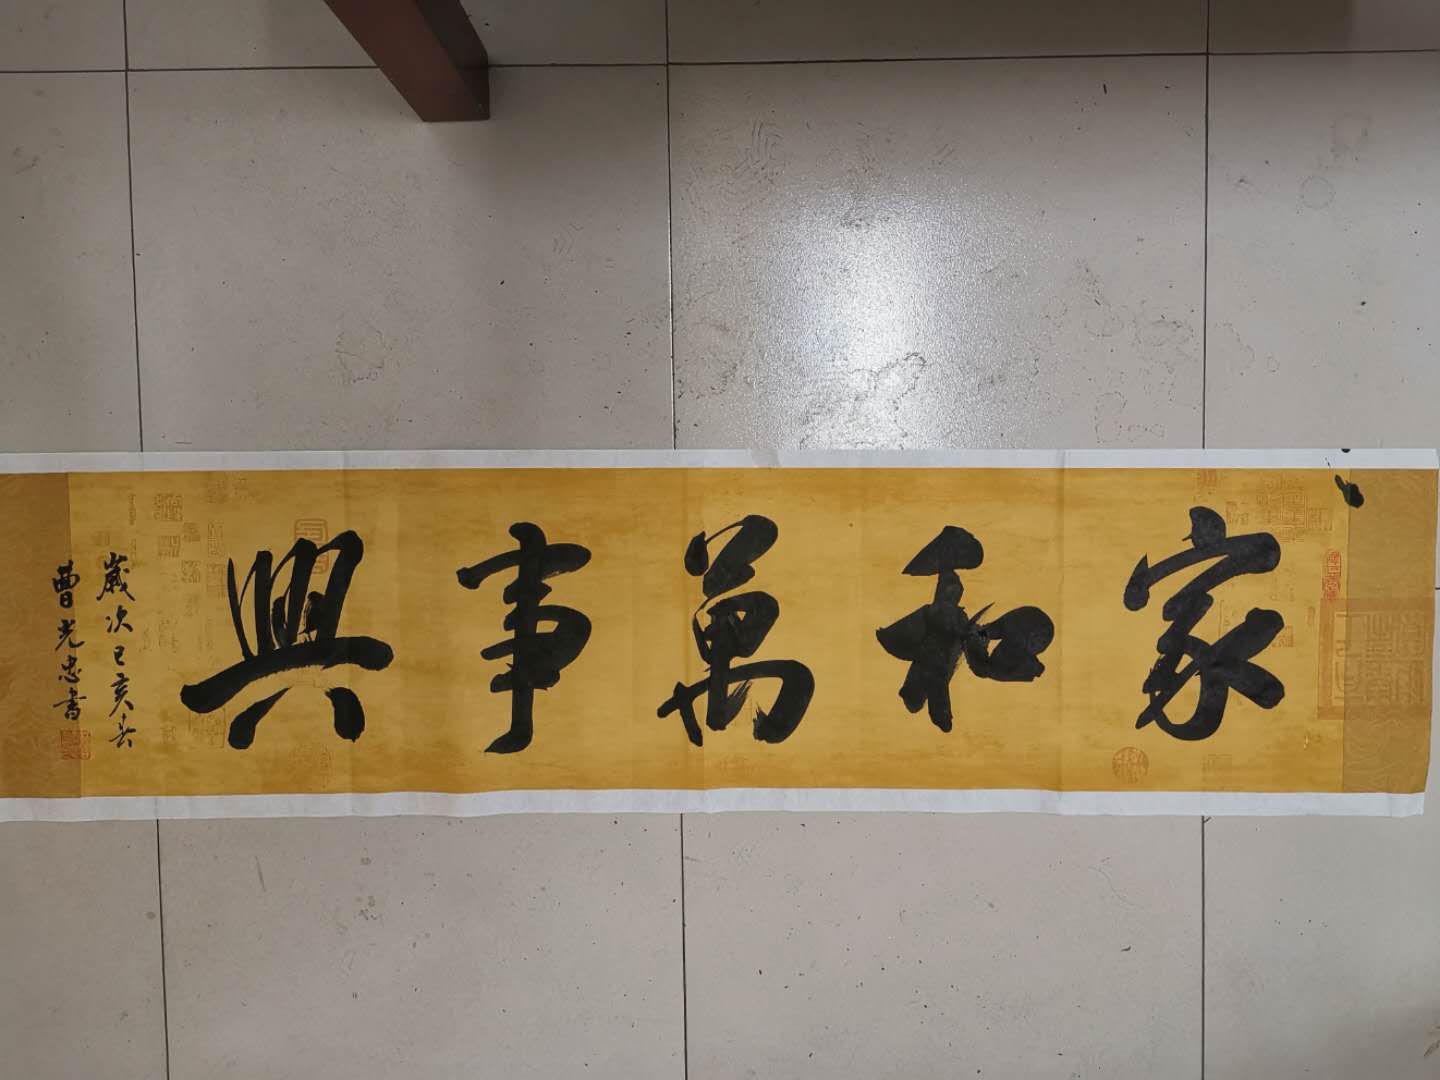 家和萬事興
歲次己亥春
曹光忠書